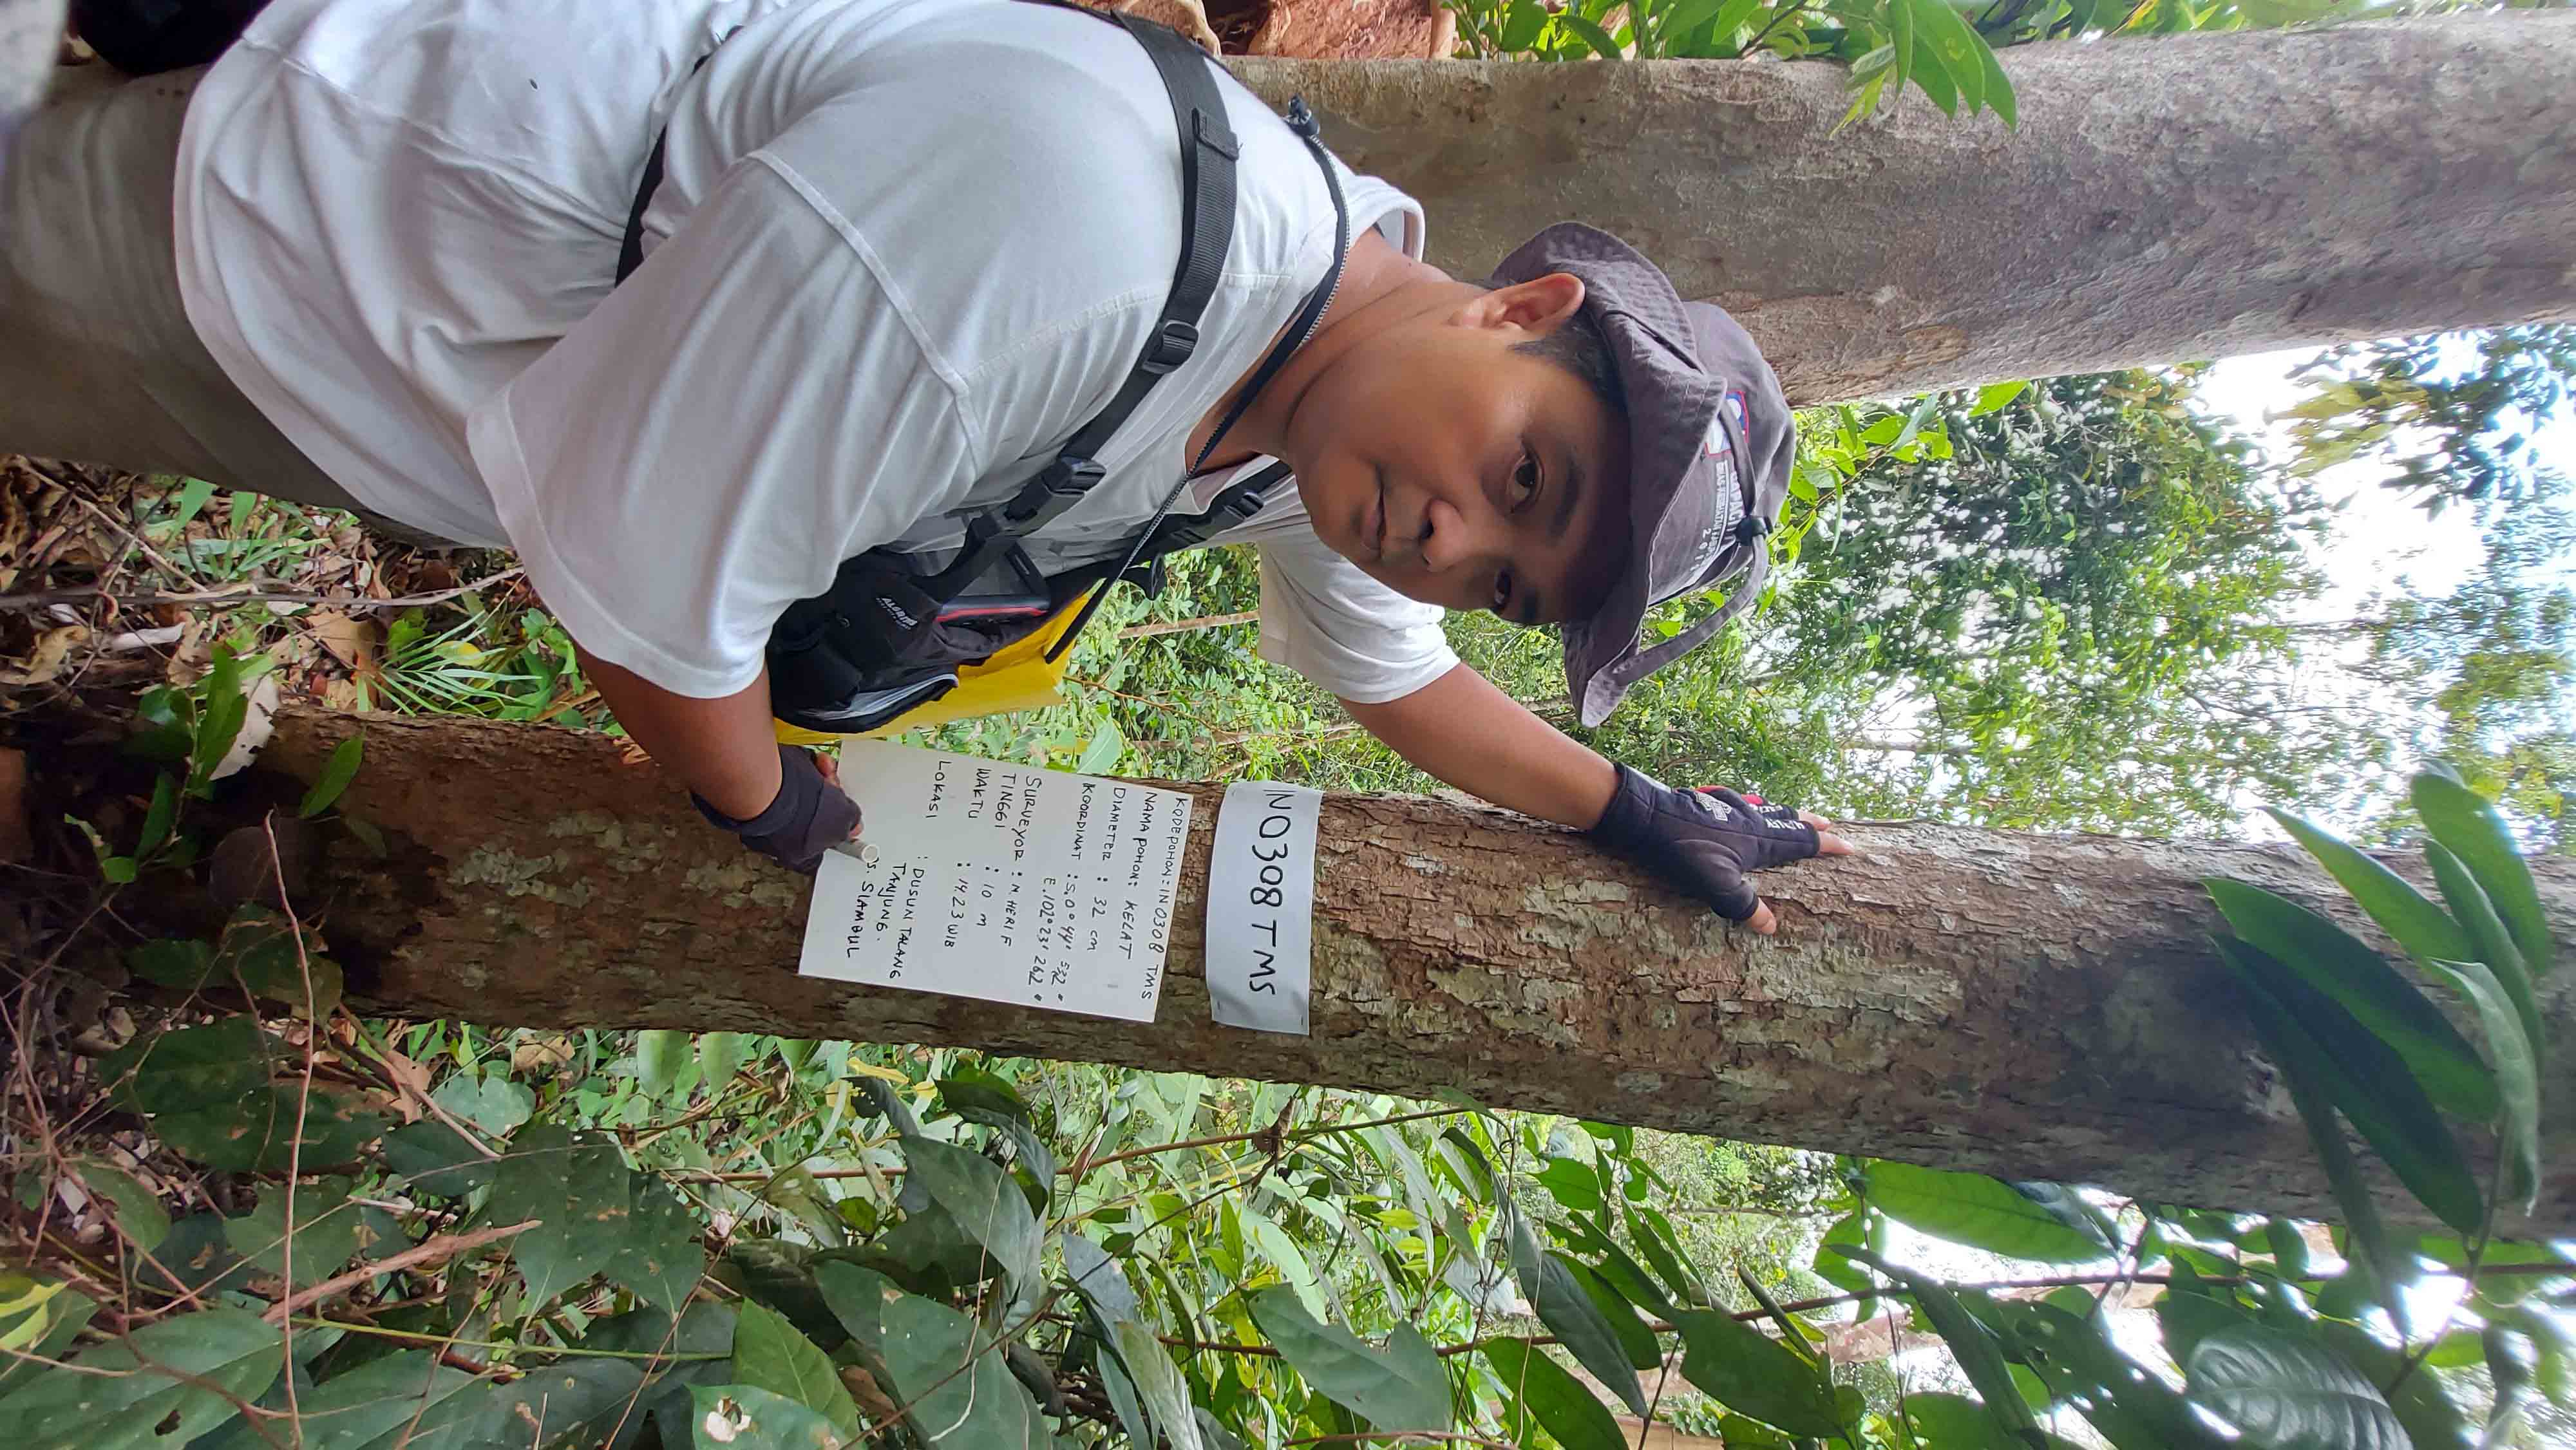 CAPACIT
DINAS KESEHATAN KABUP
201
IN0308 TMS
KODE POHON : IN 0308 TMS
NAMA POHON : KELAT
DIAMETER : 32 cm
KOORDINAT : S. 0° 44' 53,2 "
E. 102° 23' 26,2 "
SURVEYOR : M. HERI F
TINGGI : 10 m
WAKTU : 14.23 WIB
LOKASI : DUSUN TALANG
TANJUNG.
DS. SIAMBUL